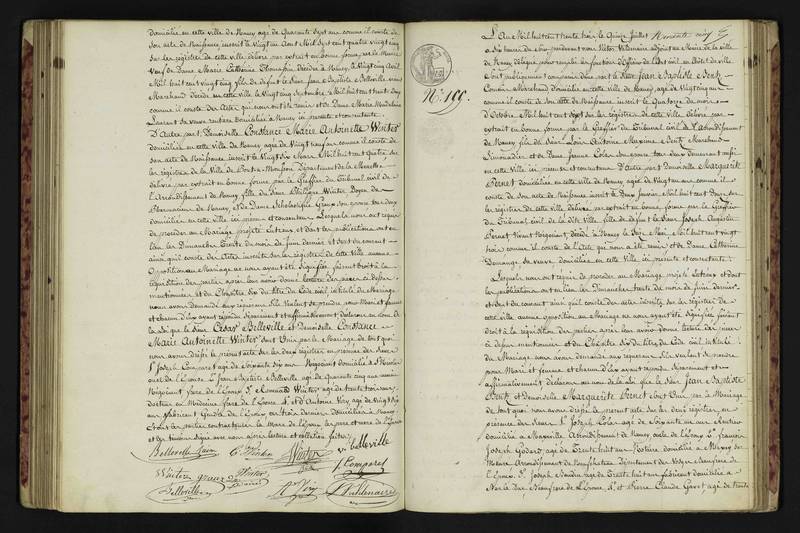 domiciliée en cette ville de Nancy âgé de Quarante sept ans comme il conste de
son acte de Naissance, inscrit le Vingt un Aout Mil sept cent quatre vingt cinq
sur les registres de cette ville délivré par extrait en bonne forme,
Veuf de Dame Marie Catherine décédée à Nancy, le Vingt cinq Avril
Mil huit cent vingt cinq fils de défunt le Sieur Jean Baptiste Belleville vivant
Marchand décédé en cette ville le Vingt Septembre Mil huit cent
comme il conste des Actes qui nous ont été remis et de Dame Marie Magdelaine
Laurent sa veuve rentière domiciliée à Nancy ici présente et consentante.
D'Autre part Demoiselle Constance Marie Antoinette Winter
domiciliée en cette ville de Nancy agée de Vingt neuf ans comme il conste de
son acte de Naissance inscrit le Vingt dix Mars Mil huit cent quatre sur
les registres de la Ville de Pont-a-Mousson Département de la Meurthe
délivré par extrait en bonne forme par le Greffier du Tribunal civil de
l'Arrondissement de Nancy fille du Sieur Philippe Winter Doyen des
Pharmaciens de Nancy et de Dame Scholastique son épouse tous deux
domiciliés en cette ville ici présens et consentans. Lesquels nous ont requis
de procéder au Mariage projetté entr'eux et dont les publications ont eu
lieu les Dimanches Trente du mois de Juin dernier et Sept du courant
ainsi qu'il conste des Actes inscrits sur les registres de cette Ville aucune
Opposition au Mariage ne nous ayant été signifiée faisant droit à la
réquisition des parties après leur avoir donné lecture des pièces ci dessus
mentionnées et du Chapitre six du titre du Code civil intitulé du Mariage
nous avons demandé aux requérans s'ils veulent se prendre pour Mari et femme
et chacun d'eux ayant répondu séparément et affirmativement déclarons au nom de
la Loi que le Sieur César Belleville et Demoiselle Constance
Marie Antoinette Winter sont Unis par le Mariage de tout quoi
nous avons dressé le présent acte sur les deux registres en présence des Sieurs
Sr Joseph Comparet agé de Soixante dix ans Négociant domicilié à St Nicolas
oncle de l'époux Sr Jean Baptiste Belleville agé de Quarante cinq ans
Négociant frère de l'époux Sr Romuald Winter agé de trente trois ans
docteur en Médecine frère de l'épouse et Sr d'Antoine Viry agé de Vingt six
ans Fabricant Cousin de l'épouse ces trois derniers domiciliés à Nancy
et ont les parties contractantes la Mère de l'époux les père et mère de l'épouse
et les témoins signé avec nous après lecture et collation faites.
Belleville Laurent C. Winter Winter V. belleville
Winter Winter J. Comparet
Belleville Viry Villemaire
L'An Mil huit cent trente trois le Quinze Juillet
à dix heures du matin pardevant nous Victor Villemaire adjoint au Maire de la ville
de Nancy délégué pour remplir les fonctions d'Officier de l'état civil en l'hôtel de ville
sont publiquement comparus d'une part le Sieur Jean Baptiste Bentz
N° 165.
Commis Marchand domicilié en cette ville de Nancy, agé de Vingt cinq ans
comme il conste de son acte de Naissance inscrit le Quatorze du mois
d'Octobre Mil huit cent Sept sur les registres de cette ville délivré par
extrait en bonne forme par le Greffier du Tribunal civil de l'Arrondissement
de Nancy fils du Sieur Louis Antoine Maxime Bentz Marchand
Limonadier et de Dame Jeanne Colar son épouse tous deux demeurant
en cette Ville ici présens et consentans. D'Autre part Demoiselle Marguerite
Pernet domiciliée en cette ville de Nancy agée de Vingt un ans comme il
conste de son acte de Naissance inscrit le Deux Janvier Mil huit cent Douze sur
les registres de cette ville délivré par extrait en bonne forme par le Greffier
du Tribunal civil de la dite Ville fille de défunt le Sieur Joseph Augustin
Pernet Vivant Négociant, décédé à Nancy le Seize Mai Mil huit cent vingt
trois comme il conste de l'Acte qui nous a été remis et de Dame Catherine
Demange sa veuve domiciliée en cette Ville ici présente et consentante
Lesquels nous ont requis de procéder au Mariage projetté entr'eux et dont
les publications ont eu lieu les Dimanches trente du mois de Juin dernier
et Sept du courant ainsi qu'il conste des Actes inscrits sur les registres de
cette ville aucune opposition au Mariage ne nous ayant été signifiée faisant
droit à la réquisition des parties après leur avoir donné lecture des pièces
ci dessus mentionnées et du Chapitre six du titre du Code civil intitulé
du Mariage nous avons demandé aux requérans s'ils veulent se prendre
pour Mari et femme et chacun d'eux ayant répondu séparément et
affirmativement déclarons au nom de la Loi que le Sieur Jean Baptiste
Bentz et Demoiselle Marguerite Pernet sont Unis par le Mariage
de tout quoi nous avons dressé le présent acte sur les deux registres, en
présence des Sieurs Sr Joseph Colar agé de Soixante un ans
domicilié à Maxéville Arrondissement de Nancy oncle de l'époux Sr François
Joseph Godard, agé de Trente huit ans Notaire domicilié à
Arrondissement de Neufchateau Département des Vosges
l'époux Sr Joseph agé de Trente huit ans domicilié à
Bar le Duc Beau frère de l'épouse, Sr et Pierre Claude agé de trente